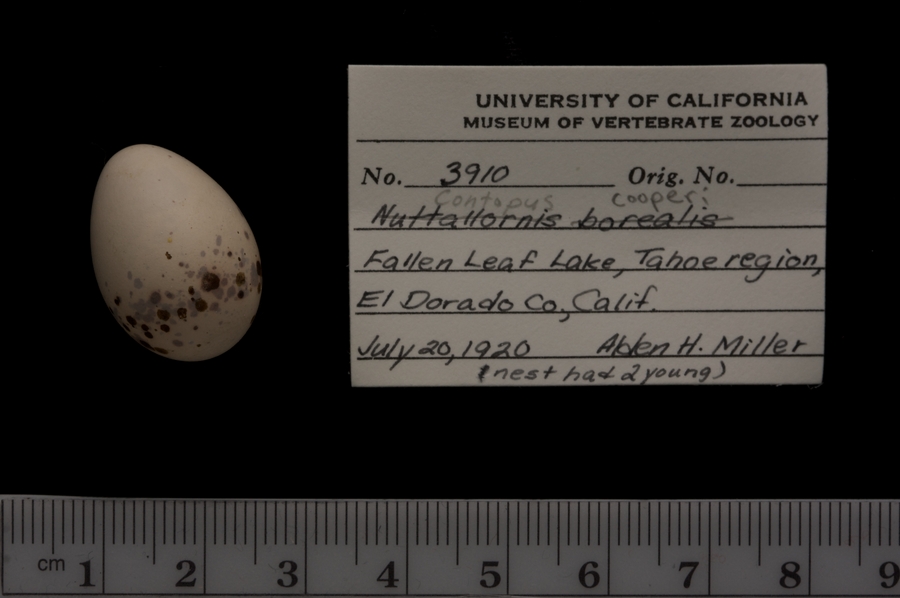 UNIVERSITY OF CALIFORNIA
MUSEUM OF VERTEBRATE ZOOLOGY
No. 3910 Orig. No.
Contopus cooperi
Nuttallornis borealis
Fallen Leaf Lake, Tahoe region,
El Dorado Co., Calif.
July 20, 1920 Alden H. Miller
(nest had 2 young)
cm 1 2 3 4 5 6 7 8 9